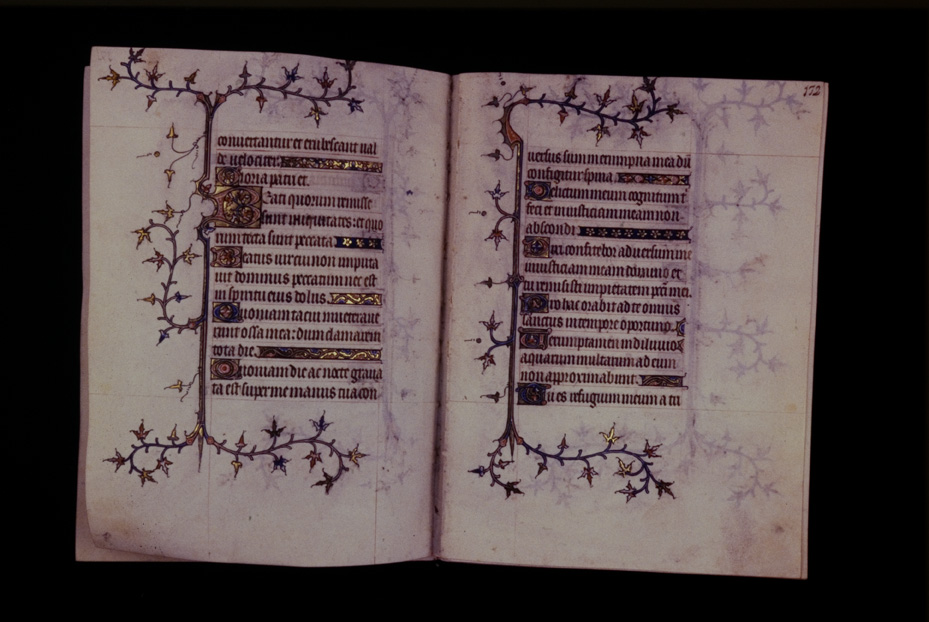 convertantur et erubescant val
de velociter.
Gloria patri et.
Beati quorum remisse
sunt iniquitates: et quo
rum tecta sunt peccata.
Beatus vir cui non imputa
vit dominus peccatum: nec est
in spiritu eius dolus.
Quoniam tacui inveterave
runt ossa mea: dum clamarem
tota die.
Quoniam die ac nocte grava
ta est super me manus tua con
172
versus sum in erumpna mea du
configitur spina.
Delictum meum cognitum t
feci et iniusticiam meam non
abscondi.
Dixi confitebor adversum me
iniusticiam meam domino et
tu remisisti impietatem peccati mei.
Pro hac orabit ad te omnis
sanctus in tempore oportuno.
Verumptamen in diluvio
aquarum multarum ad eum
non approximabunt.
Tu es refugium meum a tri